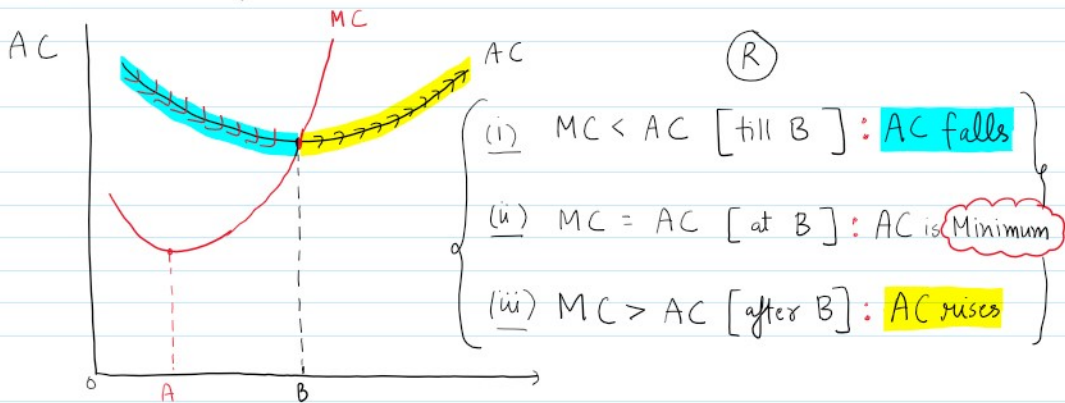 MC
AC
AC
R
(i) MC < AC [till B] : AC falls
(ii) MC = AC [at B] : AC is Minimum
(iii) MC > AC [after B] : AC rises
0 A B